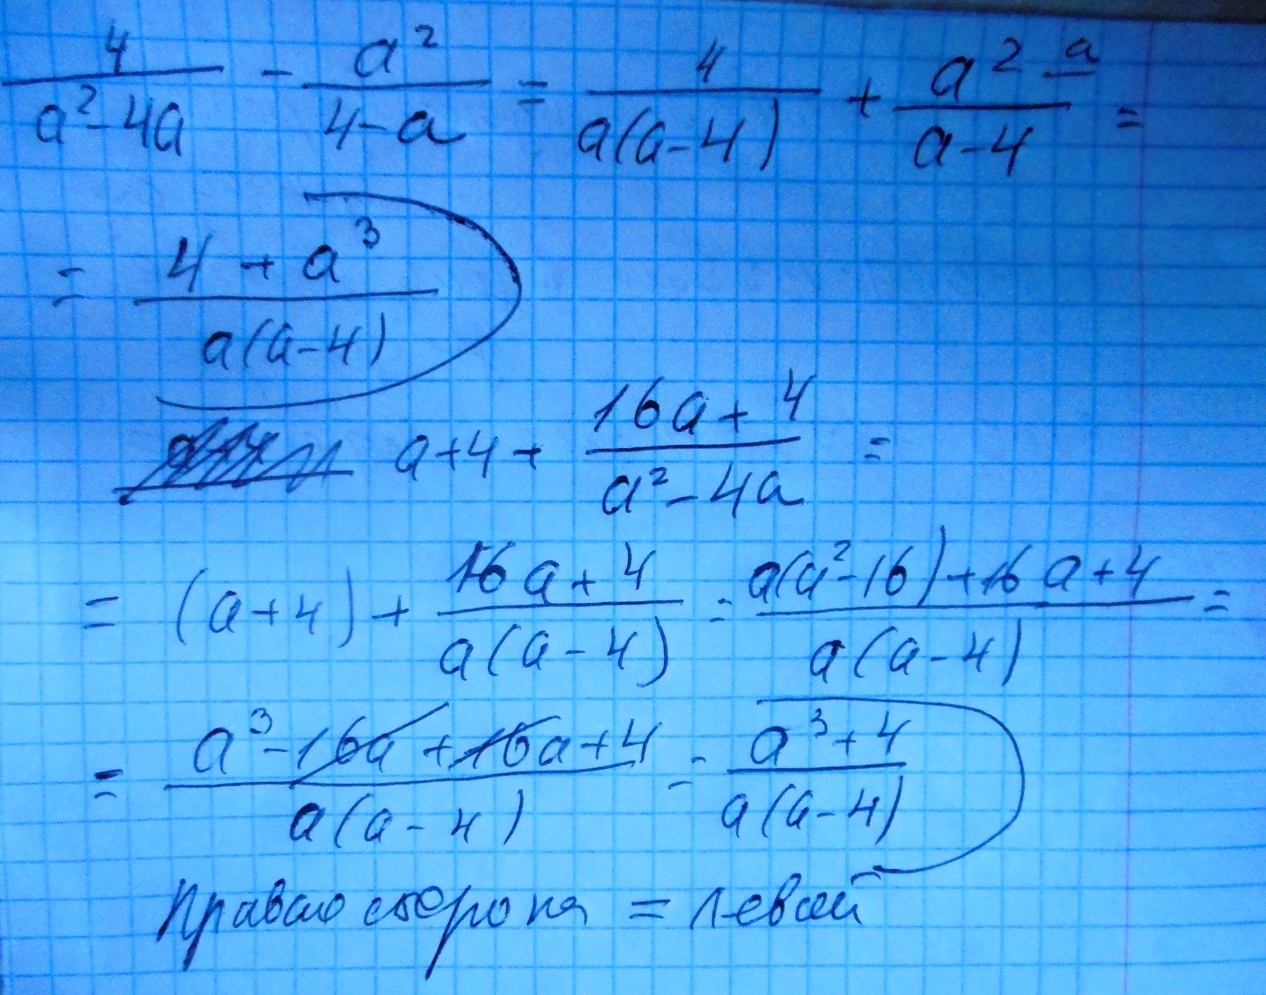 4/(a²-4a) - a²/(4-a) = 4/(a(a-4)) + a² a/(a-4) =
= (4+a³)/(a(a-4))
a+4+ (16a+4)/(a²-4a) =
= (a+4)+ (16a+4)/(a(a-4)) = (a(a²-16)+16a+4)/(a(a-4)) =
= (a³-16a+16a+4)/(a(a-4)) = (a³+4)/(a(a-4))
Правая сторона = левой